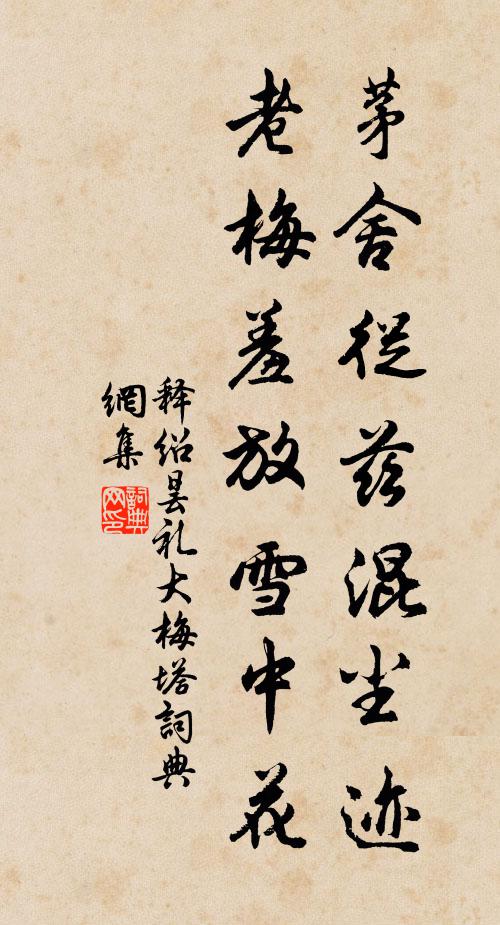 茅舍從茲混尘迹
老梅羞放雪中花
释绍昙礼大梅塔詞典
網集
詞典网印